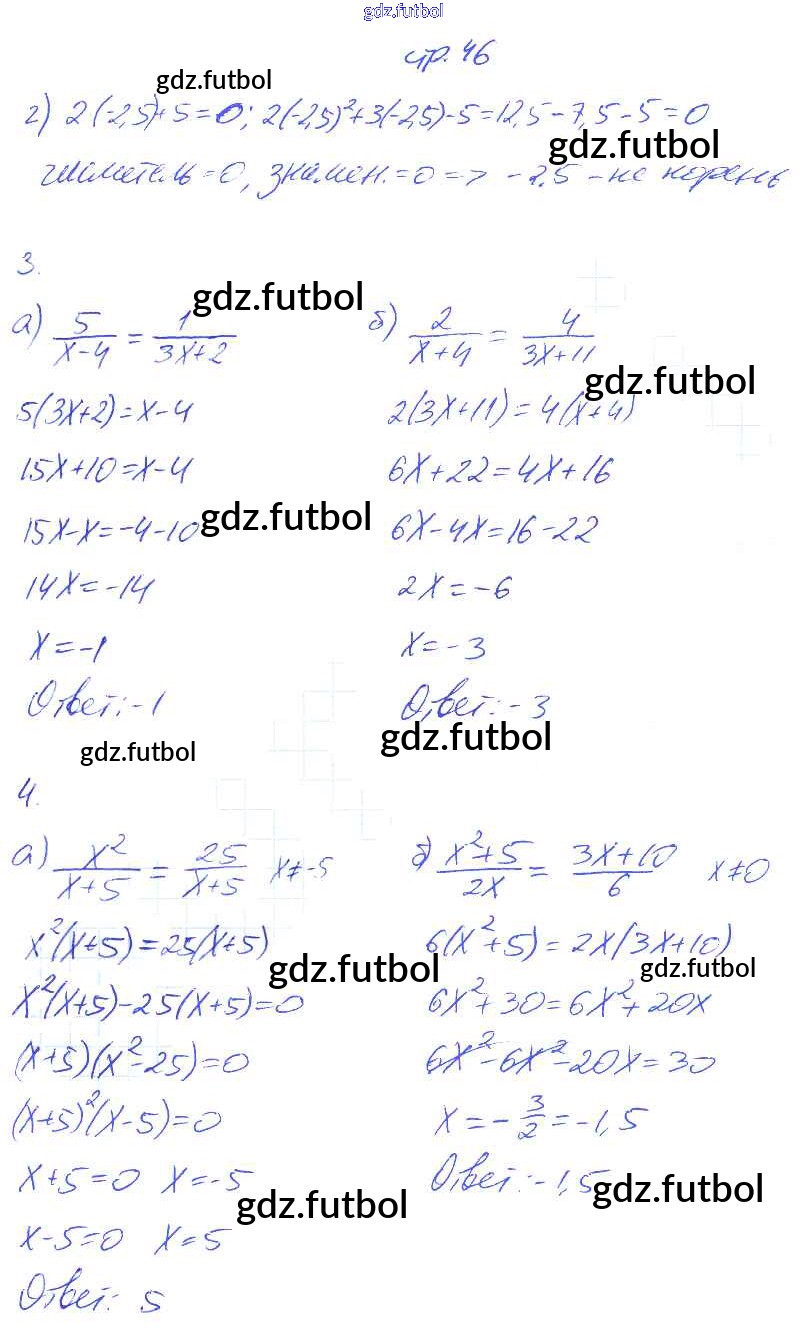 gdz.futbol
стр. 46
gdz.futbol
г) 2(-2,5)+5=0; 2(-2,5)²+3(-2,5)-5=12,5-7,5-5=0
gdz.futbol
числитель=0, знамен.=0 => -2,5 - не корень
3.
gdz.futbol
а) 5/(x-4) = 1/(3x+2)
б) 2/(x+4) = 4/(3x+11)
gdz.futbol
5(3x+2)=x-4
2(3x+11)=4(x+4)
15x+10=x-4
6x+22=4x+16
15x-x=-4-10
gdz.futbol
6x-4x=16-22
14x=-14
2x=-6
x=-1
x=-3
Ответ:-1
Ответ:-3
gdz.futbol
gdz.futbol
4.
а) x²/(x+5) = 25/(x+5) x≠-5
б) (x²+5)/2x = (3x+10)/6 x≠0
x²(x+5)=25(x+5)
6(x²+5)=2x(3x+10)
gdz.futbol
gdz.futbol
x²(x+5)-25(x+5)=0
6x²+30=6x²+20x
(x+5)(x²-25)=0
6x²-6x²-20x=30
(x+5)²(x-5)=0
x=-3/2=-1,5
x+5=0 x=-5
Ответ:-1,5
gdz.futbol
gdz.futbol
x-5=0 x=5
Ответ: 5